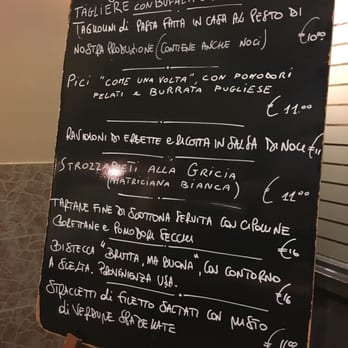 TAGLIERE CON BUFALA
TAGLIOLINI di PASTA FATTA IN CASA AL PESTO DI
NOSTRA PRODUZIONE (CONTIENE ANCHE NOCI) €10.00
PICI "COME UNA VOLTA", CON POMODORI
PELATI E BURRATA PUGLIESE
€ 11.00
RAVIOLONI DI ERBETTE E RICOTTA IN SALSA DA NOCI €11
STROZZAPRETI ALLA GRICIA
(MATRICIANA BIANCA) € 11.00
TARTARE FINE DI SCOTTONA SERVITA CON CIPOLLINE
BORETTANE E POMODORI SECCHI €16
BISTECCA "BRUTTA, MA BUONA", CON CONTORNO
A SCELTA. PROVENIENZA USA. €16
STRACCETTI di FILETTO SALTATI CON MISTO
di VERDURE SPADELLATE